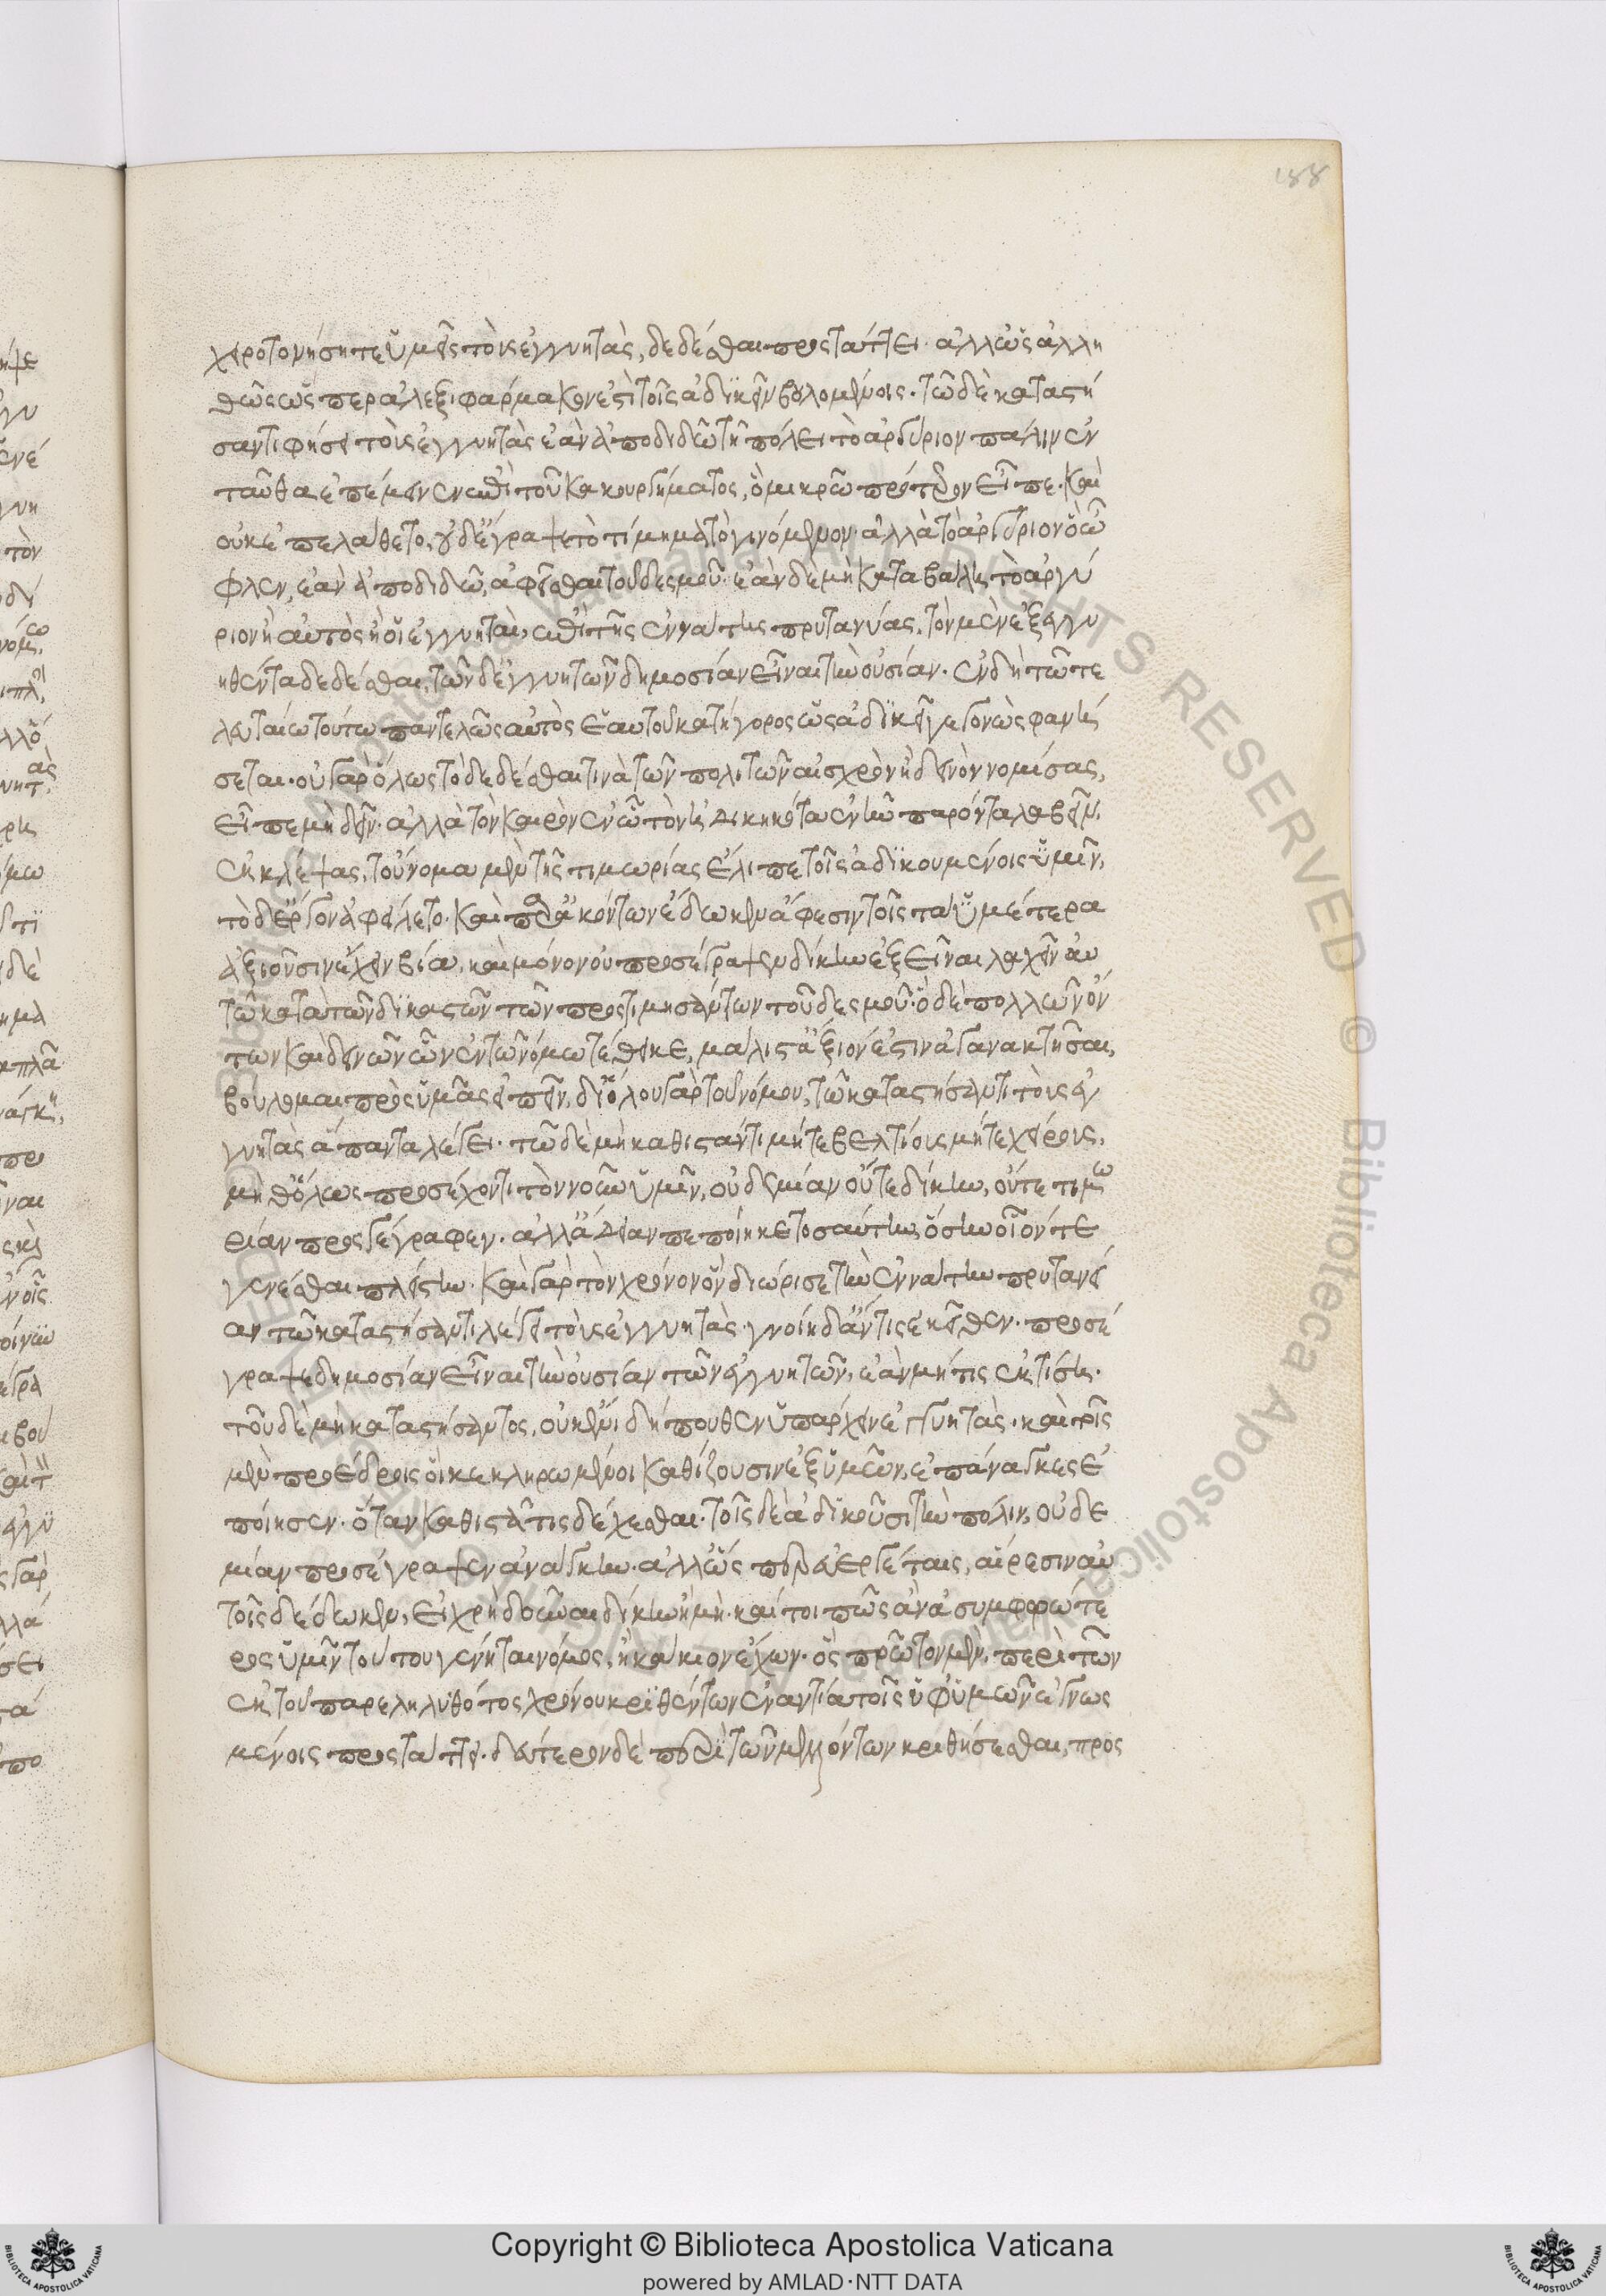 188
χειροτονήσητε ὑμεῖς τοὺς ἐγγυητὰς, δεδέσθαι προστάττει. ἀλλ' ὡς ἀλη
θῶς ὥσπερ ἀλεξιφάρμακόν ἐστι τοῖς ἀδικεῖν βουλομένοις. τῶ δὲ καταστή
σαντι φήσει τοὺς ἐγγυητὰς ἐὰν ἀποδιδῶ τῆ πόλει τὸ ἀργύριον πάλιν ἐν
ταῦθα ἐπέμεινεν ἐπὶ τοῦ κακουργήματος, ὃ μικρῶ πρότερον εἶπε. καὶ
οὐκ ἐπελάθετο, οὐδ' ἔγραψε τὸ τίμημα τὸ γινόμενον ἀλλὰ τὸ ἀργύριον ὃ ὦ
φλεν, ἐὰν ἀποδιδῶ, ἀφεῖσθαι τοῦ δεσμοῦ. ἐὰν δὲ μὴ καταβάλη τὸ ἀργύ
ριον ἢ αὐτὸς ἢ οἱ ἐγγυηταὶ, ἐπὶ τῆς ἐννάτης πρυτανείας, τὸν μὲν ἐξεγγυ
ηθέντα δεδέσθαι, τῶν δ' ἐγγυητῶν δημοσίαν εἶναι τὴν οὐσίαν. ἐν δὴ τῶ τε
λευταίω τούτω παντελῶς αὐτὸς ἑαυτοῦ κατήγορος ὡς ἀδικεῖ γεγονὼς φανή
σεται. οὐ γὰρ ὅλως τὸ δεδέσθαι τινὰ τῶν πολιτῶν αἰσχρὸν ἢ δεινὸν νομίσας,
εἶπε μὴ δεῖν. ἀλλὰ τὸν καιρὸν ἐν ὧ τὸν ἠδικηκότα ἐνῆν παρόντα λαβεῖν
ἐκκλέψας, τοὔνομα μὲν τῆς τιμωρίας ἔλιπε τοῖς ἀδικουμένοις ὑμῖν,
τὸ δ' ἔργον ἀφείλετο. καὶ παρ' ἀκόντων ἔδωκεν ἄφεσιν τοῖς τὰ ὑμέτερα
ἀξιοῦσιν ἔχειν βία. καὶ μόνον οὐ προσέγραψεν δίκην ἐξεῖναι λαχεῖν αὐ
τῶ κατὰ τῶν δικαστῶν τῶν προστιμησάντων τοῦ δεσμοῦ. ὃ δὲ πολλῶν ὄν
των καὶ δεινῶν ὧν ἐν τῶ νόμω τέθεικε, μάλιστ' ἄξιόν ἐστιν ἀγανακτῆσαι,
βούλομαι πρὸς ὑμᾶς εἰπεῖν. δι' ὅλου γὰρ τοῦ νόμου, τῶ καταστήσαντι τοὺς ἐγ
γυητὰς ἅπαντα λέγει. τῶ δὲ μὴ καθιστάντι μήτε βελτίους μήτε χείρους,
μηθ' ὅλως προσέχοντι τὸν νοῦν ὑμῖν, οὐδεμίαν οὔτε δίκην, οὔτε τιμω
ρίαν προσγέγραφεν. ἀλλ' ἄδειαν πεποίηκε τοσαύτην, ὅσην οἷόν τε
γενέσθαι πλείστην. καὶ γὰρ τὸν χρόνον ὃν διώρισε τὴν ἐννάτην πρυτανεί
αν τῶ καταστήσαντι λέγει τοὺς ἐγγυητὰς. γνοίη δ' ἄν τις ἐκεῖθεν. προσέ
γραψε δημοσίαν εἶναι τὴν οὐσίαν τῶν ἐγγυητῶν, ἐὰν μή τις ἐκτίση.
τοῦ δὲ μὴ καταστήσαντος, οὐκ ἔνι δήπουθεν ὑπάρχειν ἐγγυητὰς. καὶ τοῖς
μὲν προέδροις οἳ κεκληρωμένοι καθίζουσιν ἐξ ὑμῶν, ἐπάναγκες ἐ
ποίησεν. ὅταν καθιστᾶ τις δέχεσθαι. τοῖς δὲ ἀδικοῦσι τὴν πόλιν, οὐδε
μίαν προσέγραψεν ἀνάγκην. ἀλλ' ὥσπερ εὐεργέταις, αἵρεσιν αὐ
τοῖς δέδωκεν, εἰ χρὴ δοῦναι δίκην ἢ μὴ. καίτοι πῶς ἂν ἀσυμφορώτε
ρος ὑμῖν τούτου γένηται νόμος, ἢ κάκιον ἔχων. ὃς πρῶτον μὲν, περὶ τῶν
ἐκ τοῦ παρεληλυθότος χρόνου κριθέντων ἐναντία τοῖς ὑφ' ὑμῶν ἐγνωσ
μένοις προστάττει. δεύτερον δὲ περὶ τῶν μελλόντων κριθήσεσθαι, προς
Copyright © Biblioteca Apostolica Vaticana
powered by AMLAD·NTT DATA